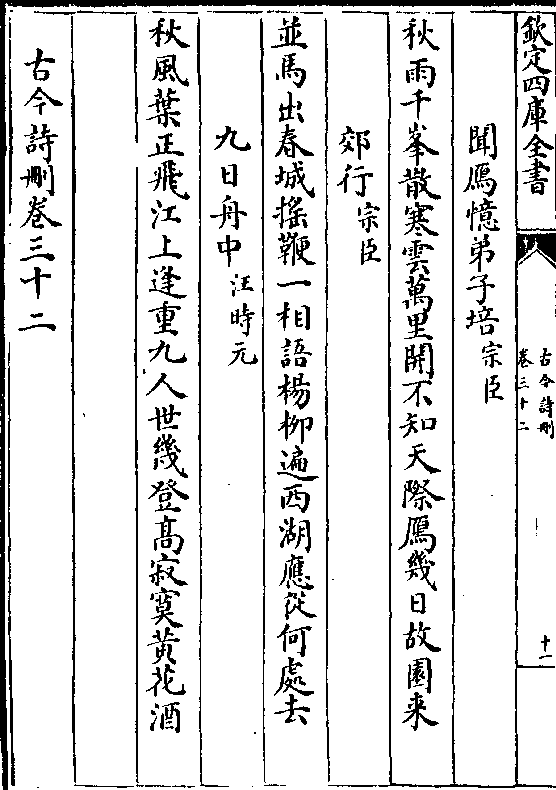 欽定四庫全書
古今詩刪
卷三十二
十一
聞鴈憶弟子培宗臣
秋雨千峯散寒雲萬里開不知天際鴈幾日故園来
郊行宗臣
並馬出春城搖鞭一相語楊柳遍西湖應從何處去
九日舟中汪時元
秋風葉正飛江上逢重九人世幾登高寂寞黄花酒
古今詩刪卷三十二